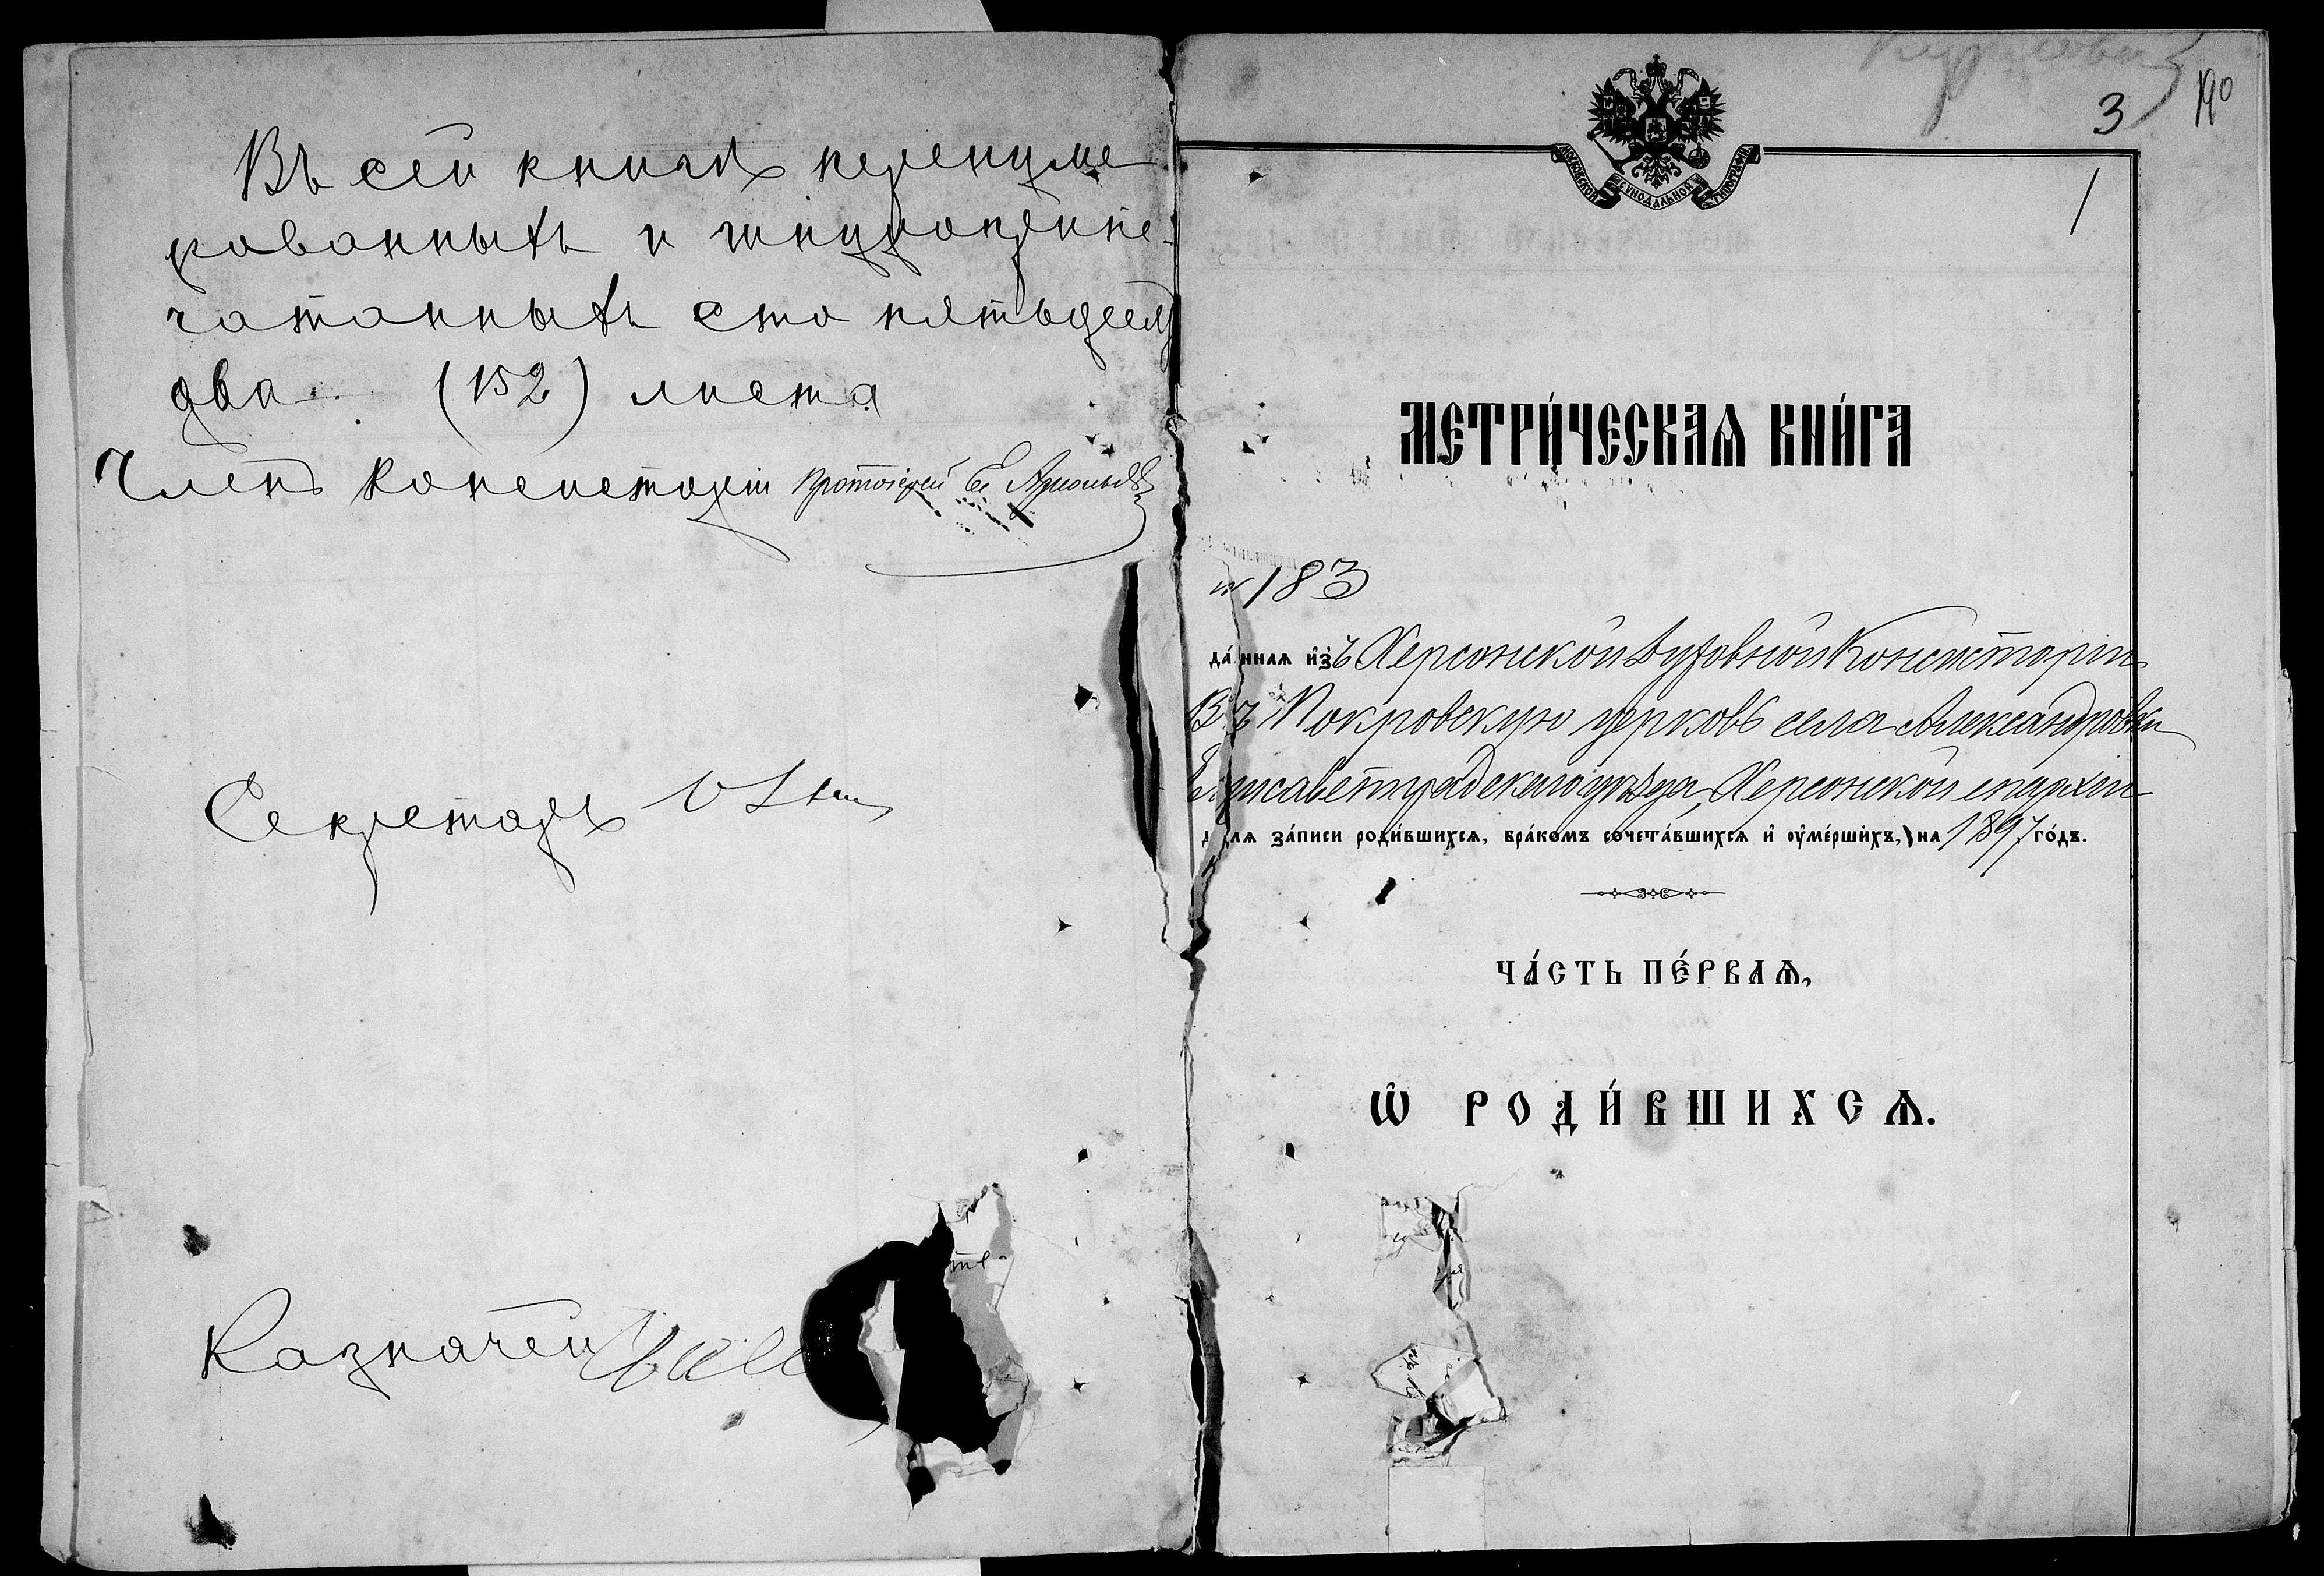 Въ сей книгѣ перенуме
рованныхъ и шнуроприпе-
чатанныхъ сто пятьдесят
два (152) листа
Членъ Консисторіи Протоіерей
Секретарь
Казначей
3
190
1
МОСКОВСКОЙ СѴНОДАЛЬНОЙ ТИПОГРАФІИ
МЕТРИ́ЧЕСКАѦ КНИ́ГА
№ 183
да́ннаѧ и҆зъ Херсонской Духовной Консисторіи
Въ Покровскую церковь села Александровки
Елисаветградскаго уѣзда, Херсонской епархіи
длѧ за́писи роди́вшихсѧ, бра́комъ сочета́вшихсѧ и҆ ѹ҆ме́ршихъ, на 1897 го́дъ.
ЧА́СТЬ ПЕ́РВАѦ,
Ѡ҆ РОДИ́ВШИХСѦ.